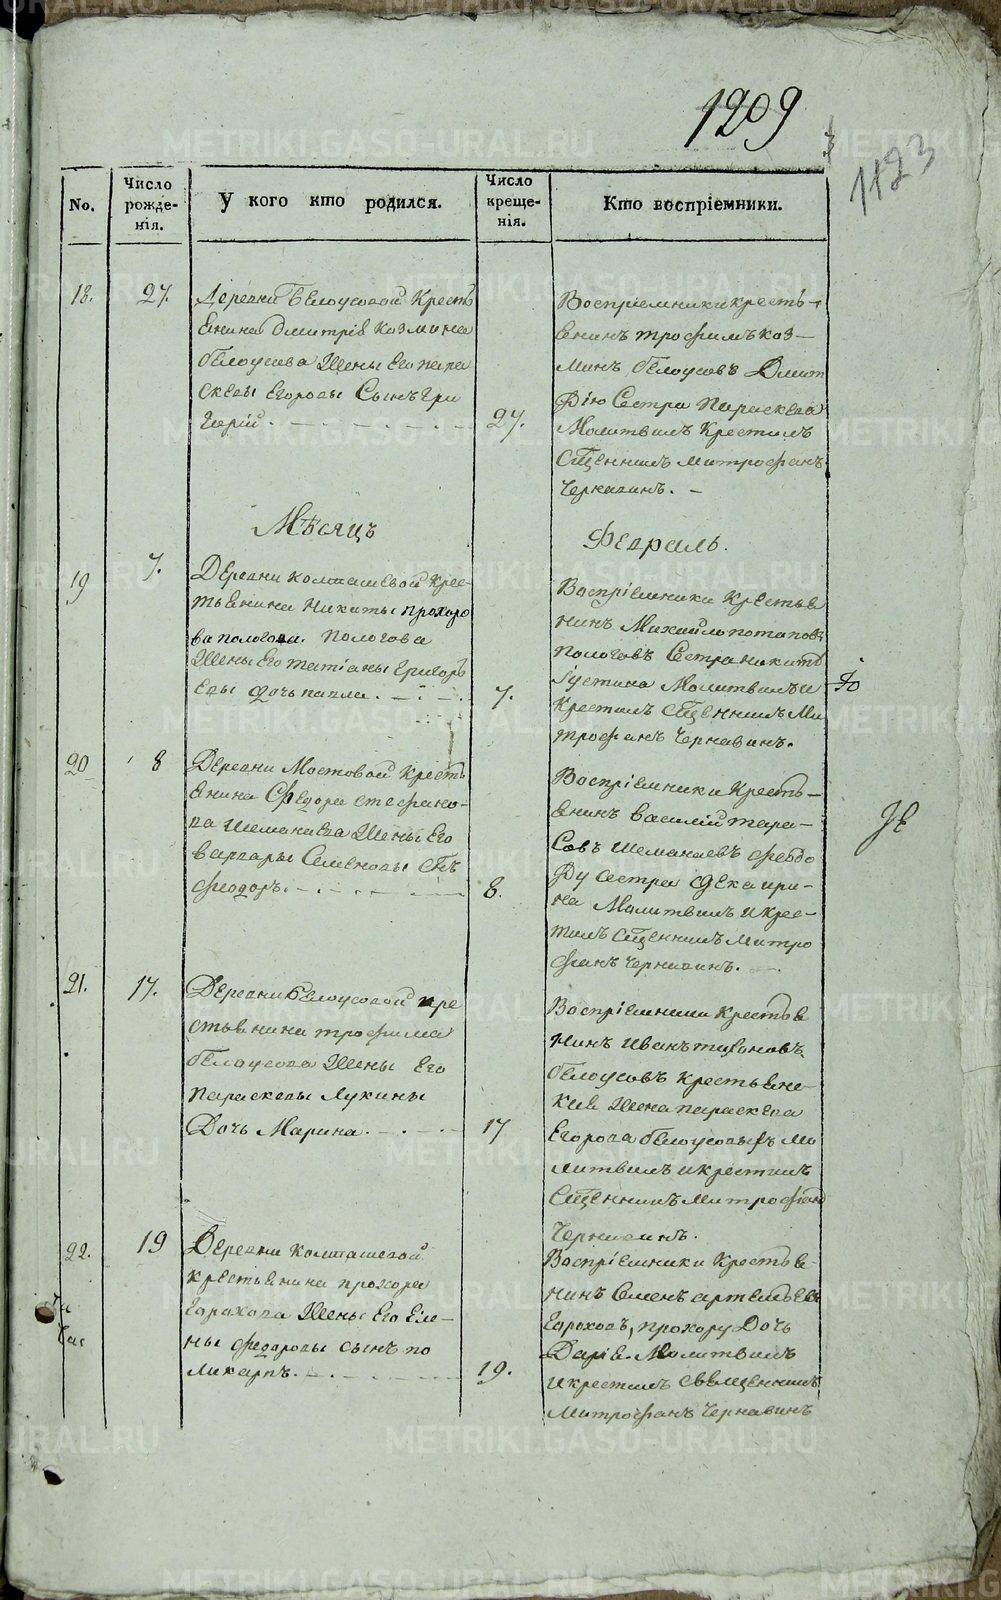 1209
1123
No.
Число рожде-нія.
У кого кто родился.
Число креще-нія.
Кто воспріемники.
18.
27.
Деревни Бѣлоусовой Кресть
янина Дмитрія Козмина
бѣлоусова Жены Его пара
скевы Егоровы Сынъ Гри
горій.
27.
Воспріемники кресть-
янинъ трофимъ коз-
минъ бѣлоусовъ Дмит
рію Сестра Параскева
Молитвилъ Крестилъ
Сщенникъ митрофанъ
Чернавинъ.
Мѣсяцъ
Февраль.
19
7.
Деревни колташевой Крес-
тьянина Никиты прохоро
ва пологова. пологова
Жены Его татіаны Григорь
евы дочь
7.
Воспріемники Крестья
нинъ Михайло потаповъ
пологовъ Сестра никитѣ
іустина Молитвилъ и
Крестилъ Сщенникъ Ми
трофанъ Чернавинъ.
20
8
Деревни Мостовой Кресть
янина Федора стефано-
ва шеманаева Жены Его
варвары Семеновы Снъ
феодоръ.
8.
Воспріемники Кресть-
янинъ василій тара-
совъ шеманаевъ феодо
ру сестра дѣвка ири-
на Молитвилъ и крес-
тилъ Сщенникъ митро
фанъ Чернавинъ.
21.
17.
Деревни Бѣлоусовой кре
стьянина трофима
бѣлоусова Жены Его
параскевы Лукины
Дочь Марина.
17
Воспріемники Крестья
нинъ иванъ тихоновъ
бѣлоусовъ крестьянс-
кая Жена параскева
Егорова бѣлоусовыхъ мо
литвилъ и крестилъ
Сщенникъ митрофанъ
Чернавинъ.
22.
19
Деревни колташевой
крестьянина прохора
Горохова Жены Его Еле-
ны федоровы сынъ по
ликарпъ.
19.
Воспріемники Крестья-
нинъ Семенъ артемьевъ
Гороховъ, прохору Дочь
Дарія. Молитвилъ
и крестилъ Священникъ
митрофанъ Чернавинъ